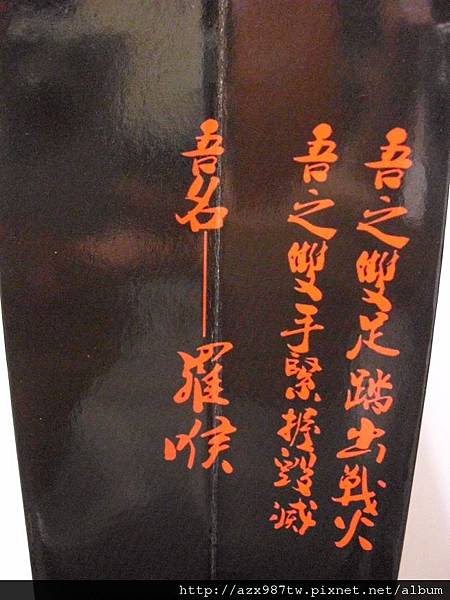 吾之雙足踏出戰火
吾之雙手緊握毀滅
吾名──羅喉
http://azx987tw.pixnet.net/album